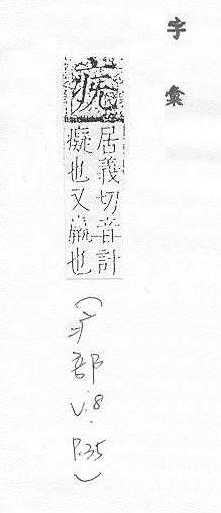 字彙
居義切音計
癡也又羸也
(疒部 V.8. P.35)